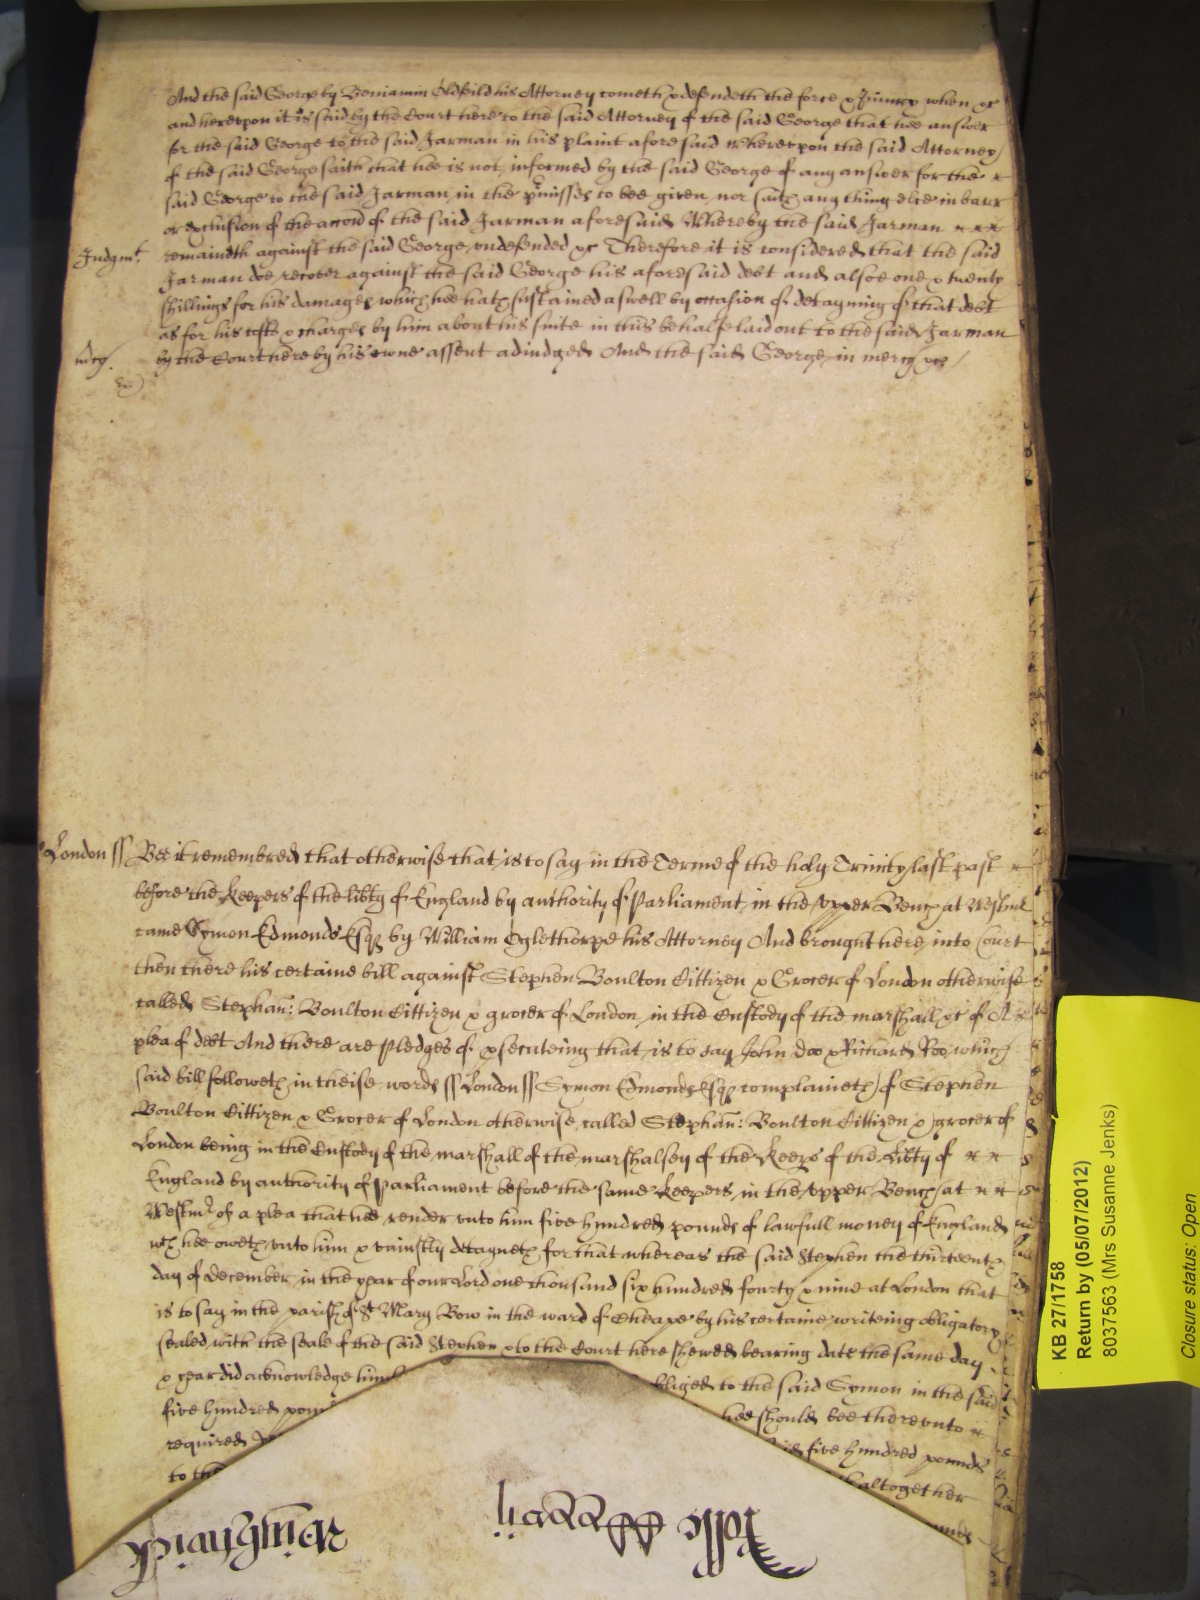 And the said George by Beniamin Oldfeild his Attorney cometh & defendeth the force & Iniury when &c
and herevpon it is said by the Court here to the said Attorney of the said George that hee answer
for the said George to the said Jarman in his plaint aforesaid Wherevpon the said Attorney
of the said George saith that hee is not informed by the said George of any answer for the
said George to the said Jarman in the p'misses to bee given nor saith any thing else in barr
or exclusion of the accon of the said Jarman aforesaid Whereby the said Jarman
Judgmt. remaineth against the said George vndefended &c Therefore it is considered that the said
Jarman doe recover against the said George his aforesaid debt and alsoe one & twenty
shillings for his damages which hee hath sustained aswell by occasion of detayning of that debt
as for his costs & charges by him about his suite in this behalfe laid out to the said Jarman
mcy. by the Court here by his owne assent adiudged And the said George in mercy &c
London ss Bee it remembred that otherwise that is to say in the Terme of the holy Trinity last past
before the Keepers of the libty of England by authority of Parliament in the vpper Bench at Westmr
came Symon Edmonds Esqr by William Oglethorpe his Attorney And brought here into Court
then there his certaine bill against Stephen Boulton Cittizen & Grocer of London otherwise
called Stephan: Boulton Cittizen & grocer of London in the Custody of the marshall &c of A
plea of debt And there are Pledges of &secuteing that is to say John Doo & Richard Roo which
said bill followeth in theise words ss London ss Symon Edmonds Esqr complaineth of Stephen
Boulton Cittizen & Grocer of London otherwise called Stephan: Boulton Cittizen & grocer of
London being in the Custody of the marshall of the marshalsey of the Keeps of the Libty of
England by authority of Parliament before the same Keepers in the vpper Bench at
Westmr of a plea that hee render vnto him five hundred pounds of lawfull money of England
wch hee oweth vnto him & vniustly detayneth for that whereas the said Stephen the thirteenth
day of December in the year of our Lord one thousand six hundred fourty & nine at London that
is to say in the parish of St Mary Bow in the ward of Cheape by his certaine writeing obligatory
sealed with the seale of the said Stephen & to the Court here shewed bearing date the same day
& year did acknowledge him bliged to the said Symon in the said
five hundred poun hee should bee therevnto
required five hundred pounds
to the altogether
KB 27/1758
Return by (05/07/2012)
8037563 (Mrs Susanne Jenks)
Closure status: Open